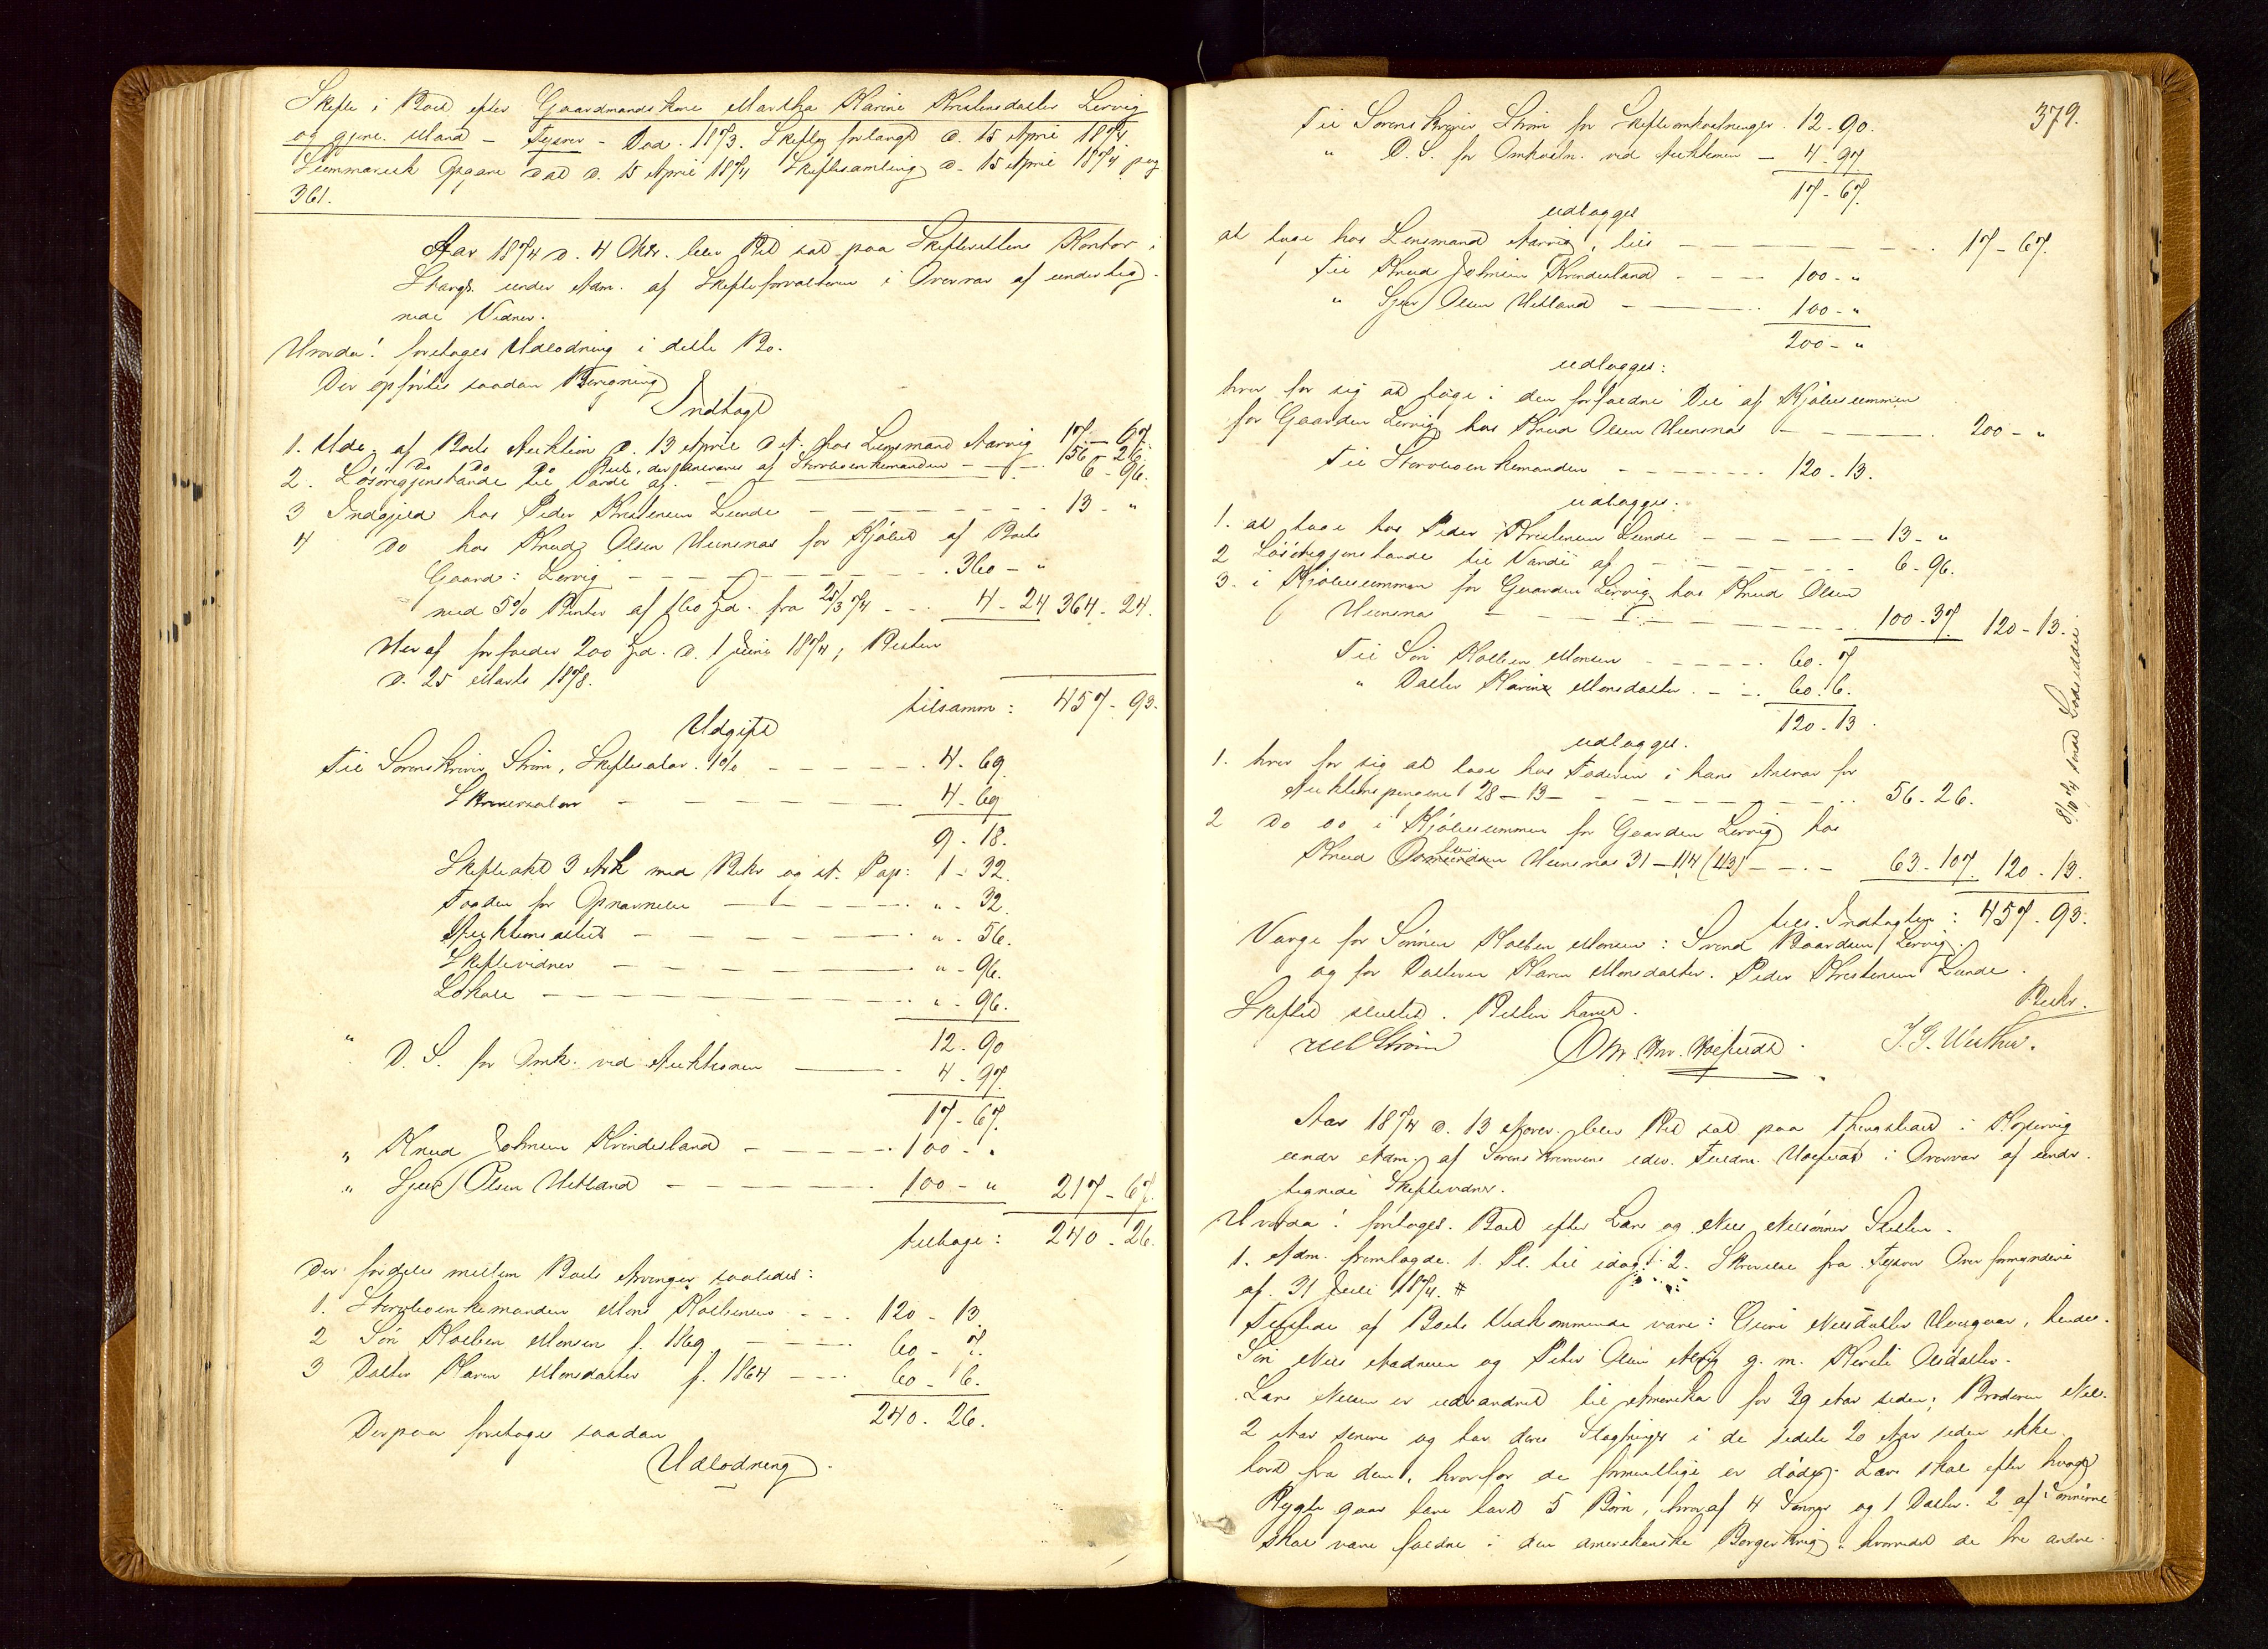 Skifte i Boet efter Gaardmandskone Martha Karine Kristensdatter Lervig
og gjenl. Mand - Tysvær - Død. 1873. Skiftet forlangt d. 15 April 1874.
Summarisk Opgave dat d. 15 April 1874 Skiftesamling d. 15 April 1874 pag
361.
Aar 1874 d. 4 Oktr. blev Ret sat paa Skifterettens Kontor i
Stavgr. under Adm. af Skifteforvalteren i Overvær af underteg-
nede Vidner.
Hvorda! foretoges Udlodning i dette Bo.
Der opførtes saadan Beregning
Indtægt
1. Udb. af Boets Auktion d. 13 April d. A. hos Lensmand Aarvig 17 - 67.
Do Do Do Belb. der ansvares af Sterboenkemanden - - 56 - 26.
2. Løsøregjenstande til Værdi af. - - 6 - 96.
3 Indgjeld hos Peder Kristensen Lunde - - - 13 - "
4 Do hos Knud Olsen Hunsnæs for Kjøbet af Boets
Gaard: Lervig - - - 360 - "
med 5% Renter af 160 Spd. fra 25/3 74 - - 4 - 24 364 - 24.
Heraf forfalder 200 Spd. d. 1 Juni 1874; Resten
d. 25 Marts 1878.
tilsamm: 457 - 93.
Udgift
Til Sorenskriver Strøm, Skiftesalær. 1% - - - 4 - 69
Skriversalær - - - 4 - 69
9 - 18.
Skifteakt 3 Ark med Bekr og st. Pap: 1 - 32.
Fogden for Opnævnelse - - - " - 32.
Auktionsattest - - - " - 56.
Skiftevidner - - - " - 96.
Lokale - - - " - 96.
12 - 90
" D. S. for Omk. ved Auktionen - - 4 - 97.
17 - 67.
" Knud Johnsen Kvindesland - - - 100 - "
" Sjur Olsen Hetland - - - 100 - " 217 - 67.
tilbage: 240 - 26.
Der fordeles mellem Boets Arvinger saaledes:
1. Sterboenkemanden Mons Kolbensen - - 120 - 13
2 Søn Kolben Monsen f. 1869. - - - 60 - 7.
3 Datter Karen Monsdatter f. 1864 - - 60 - 6.
240 - 26.
Derpaa foretoges saadan
Udlodning.
379.
Til Sorenskriver Strøm for Skifteomkostninger. 12 - 90.
" D. S. for Omkostn. ved Auktionen - 4 - 97.
17 - 67.
udlægges
at tage hos Lensmand Aarvig, - - - 17 - 67.
Til Knud Johnsen Kvindesland - - - 100 - "
" Sjur Olsen Hetland - - - 100 - "
200 - "
udlægges:
hver for sig at tage i den forfaldne Del af Kjøbesummen
for Gaarden Lervig hos Knud Olsen Hunsnæs - - - 200 - "
Til Sterboenkemanden - - - 120 - 13.
udlægges.
1. at tage hos Peder Kristensen Lunde - - - 13 - "
2 Løsøregjenstande til Værdi af - - - 6 - 96.
3. i Kjøbesummen for Gaarden Lervig hos Knud Olsen
Hunsnæs - - - 100 - 37 120 - 13.
Til Søn Kolben Monsen - - - 60 - 7
" Datter Karen Monsdatter. - - 60 - 6.
120 - 13.
udlægges.
1. hver for sig at tage hos Faderen i hans Ansvar for
Auktionspengene 28 - 13 - - - 56 - 26.
2 Do Do i Kjøbesummen for Gaarden Lervig hos
Knud Olsen Hunsnæs 31 - 114 (113) - - 63 - 107. 120 - 13.
tils. Indtægten: 457 - 93.
Værge for Sønnen Kolben Monsen: Svend Baardsen Lervig
og for Datteren Karen Monsdatter. Peder Kristensen Lunde.
Skiftet sluttet. Retten hævet.
Bekr.
Strøm
J. G. Wuthus.
8/10 74 sendt Lodseddel
Aar 1874 d. 13 Novbr. blev Ret sat paa Thingstuen i Kopervig
under Adm. af Sorenskriverens edsv. Fuldm. i Overvær af under-
tegnede Skiftevidner.
Hvorda! foretoges. Boet efter Lars og Nils Nilssønner Sletten.
1. Adm. fremlagde. 1. Pl. til idag. 2. Skrivelse fra Tysvær Overformynderi
af. 31 Juli 1874. #
Tilstede af Boets Vedkommende vare: Guri Nilsdatter, hendes
Søn Nils Aadnesen og Peter Olsen g. m. Kirsti Olsdatter.
Lars Nilsen er udvandret til Amerika for 39 Aar siden; Broderen Nils
2 Aar senere og har deres Slægtninger i de sidste 20 Aar siden ikke
hørt fra dem, hvorfor de formentlig er døde. Lars skal efter hvad
Rygte gaar have havt 5 Børn, hvoraf 4 Sønner og 1 Datter. 2 af Sønnerne
skal være faldne i den amerikanske Borgerkrig, hvorved de tre andre